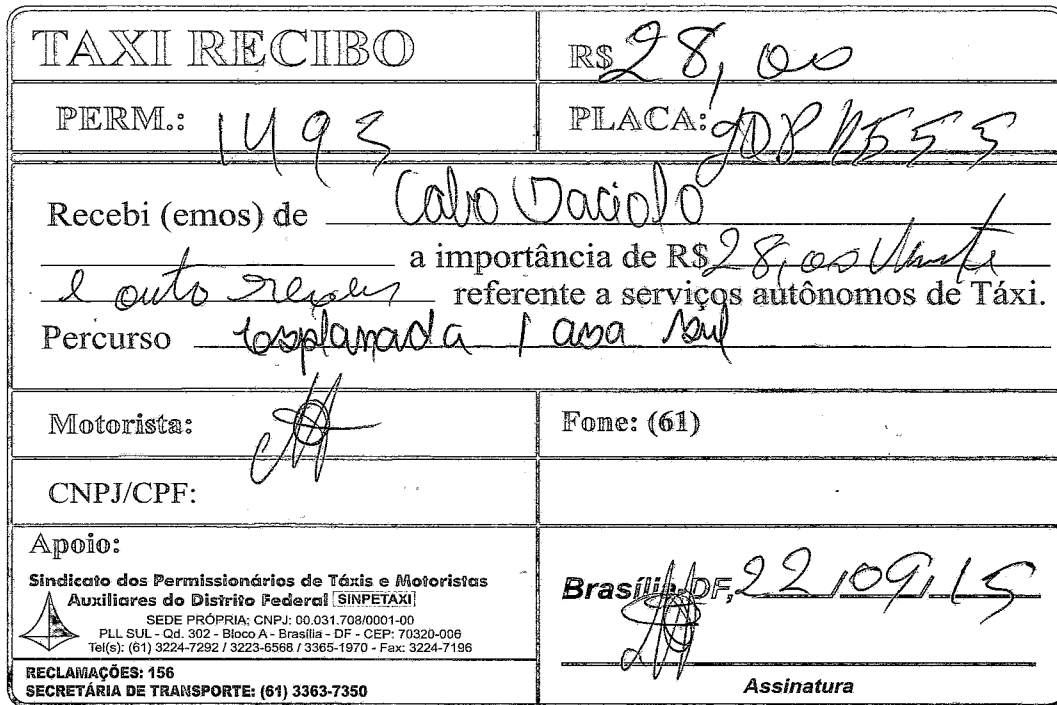 TAXI RECIBO
R$ 28,00
PERM.: 1493
PLACA:
Recebi (emos) de Cabo Daciolo
a importância de R$ 28,00 Vinte
e outo reais referente a serviços autônomos de Táxi.
Percurso Esplanada / asa sul
Motorista:
Fone: (61)
CNPJ/CPF:
Apoio:
Sindicato dos Permissionários de Táxis e Motoristas
Auxiliares do Distrito Federal SINPETAXI
SEDE PRÓPRIA; CNPJ: 00.031.708/0001-00
PLL SUL - Qd. 302 - Bloco A - Brasília - DF - CEP: 70320-006
Tel(s): (61) 3224-7292 / 3223-6568 / 3365-1970 - Fax: 3224-7196
RECLAMAÇÕES: 156
SECRETÁRIA DE TRANSPORTE: (61) 3363-7350
Brasília-DF, 22/09/15
Assinatura